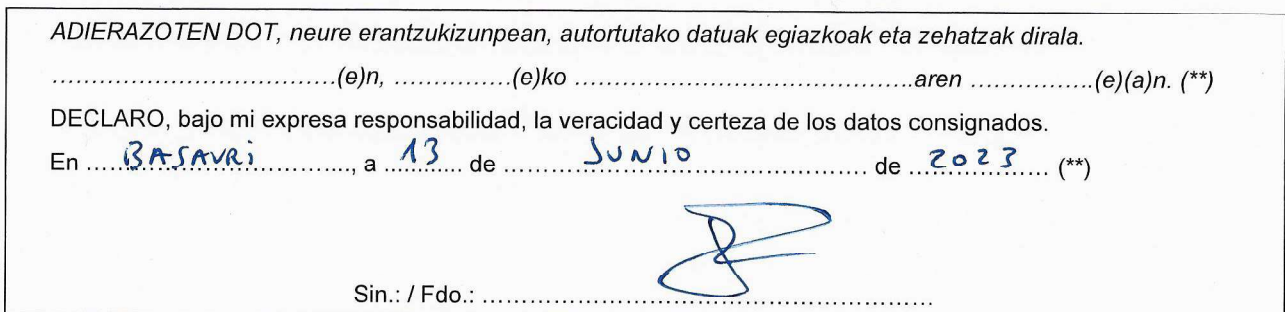 ADIERAZOTEN DOT, neure erantzukizunpean, autortutako datuak egiazkoak eta zehatzak dirala.
....................................(e)n, ...............(e)ko ...........................................aren ................(e)(a)n. (**)
DECLARO, bajo mi expresa responsabilidad, la veracidad y certeza de los datos consignados.
En ..... BASAURI ....., a ... 13 ... de .......... JUNIO .......... de ... 2023 ... (**)
Sin.: / Fdo.: ..........................................................